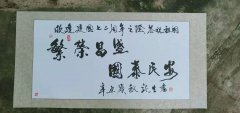 欣逢建國七二周年之際恭祝祖國
繁荣昌盛
國泰民安
辛丑歲秋
書